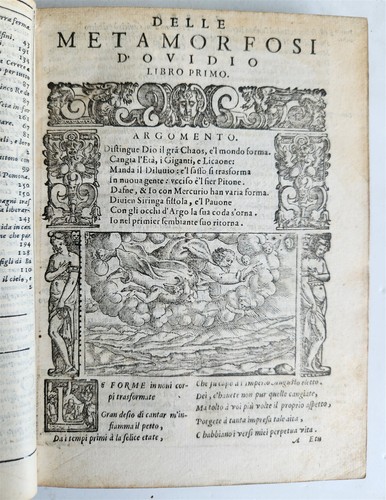 DELLE
METAMORFOSI
D'OVIDIO
LIBRO PRIMO.
ARGOMENTO.
Distingue Dio il grã Chaos, e'l mondo forma.
Cangia l'Età, i Giganti, e Licaone:
Manda il Diluuio: e'l sasso si trasforma
In nuoua gente: vcciso è'l fier Pitone.
Dafne, & Io con Mercurio han varia forma.
Diuien Siringa fistola, e'l Pauone
Con gli occhi d'Argo la sua coda adorna.
Io nel primier sembiante suo ritorna.
LE FORME in noui cor
pi trasformate
Gran desio di cantar m'in
fiamma il petto,
Da i tempi primi à la felice etate,
Che fu capo à l'Imperio Augusto eletto.
Dei, c'hauete non pur quelle cangiate,
Ma tolto à voi più volte il proprio aspetto,
Porgete à tanta impresa tale aita,
C'habbiano i versi miei perpetua vita.
A
43
131
187
89
67
187
194
120